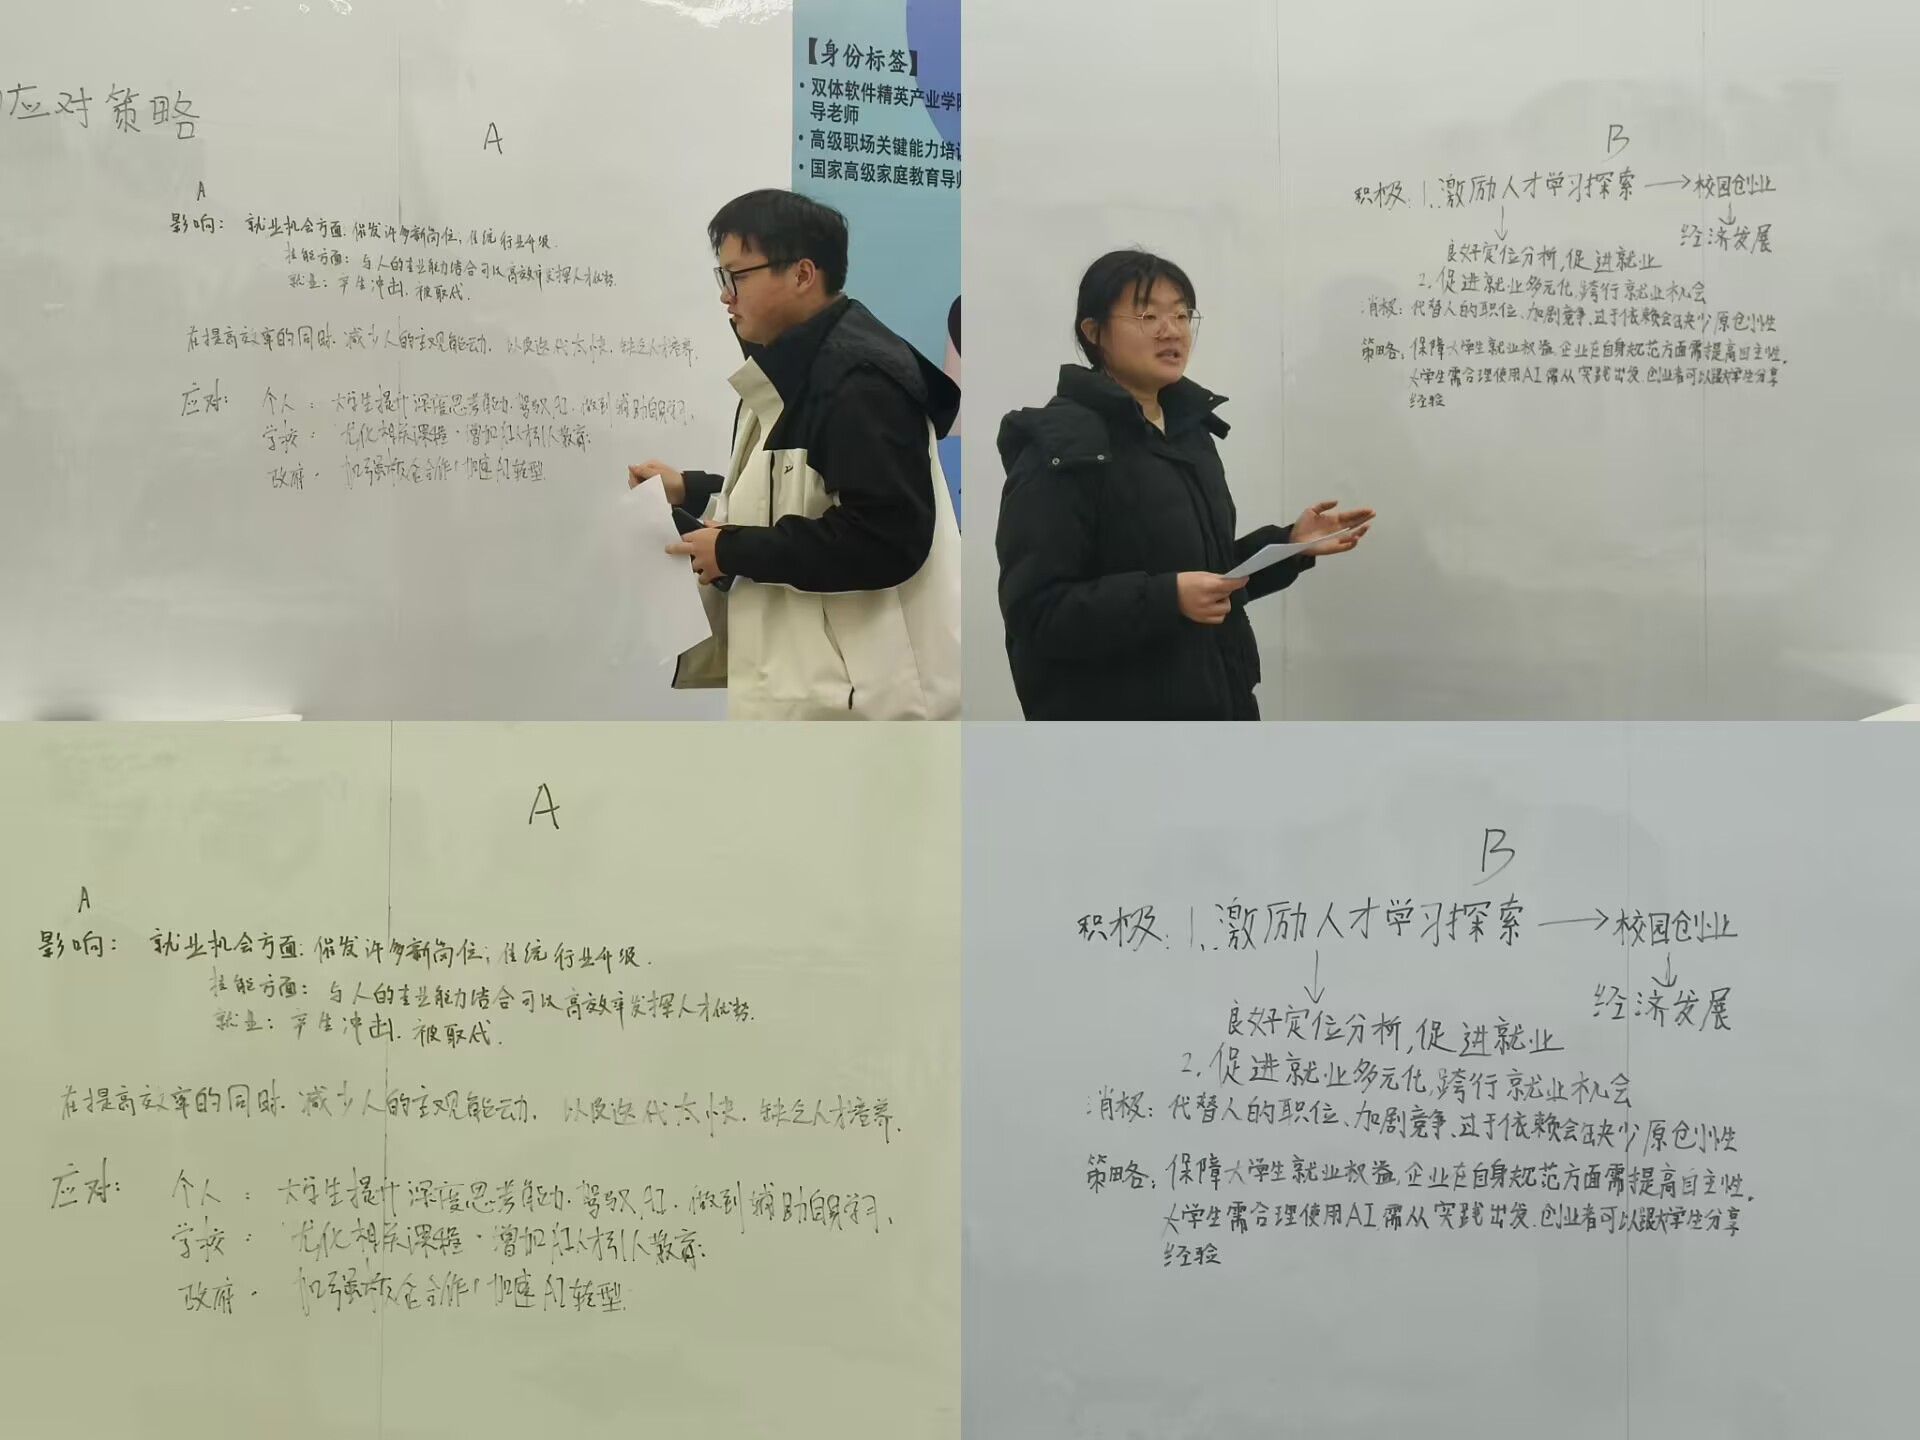 应对策略
A
A
影响：就业机会方面：催发许多新岗位；传统行业升级.
技能方面：与人的专业能力结合可以高效率发挥人才优势.
就业：产生冲击.被取代.
在提高效率的同时.减少人的主观能动.以及迭代太快.缺乏人才培养.
应对：个人：大学生提升深度思考能力.驾驭AI.做到辅助自学习、
学校：优化相关课程·增加AI人才引入教育；
政府·加强校企合作！加速AI转型.
【身份标签】
• 双体软件精英产业学院
导老师
• 高级职场关键能力培训
• 国家高级家庭教育导师
B
积极：1、激励人才学习探索→校园创业
↓
经济发展
良好定位分析,促进就业
2.促进就业多元化,跨行就业机会
消极：代替人的职位、加剧竞争、过于依赖会缺少原创性
策略：保障大学生就业权益,企业在自身规范方面需提高自主性。
大学生需合理使用AI需从实践出发.创业者可以跟大学生分享
经验
A
A
影响：就业机会方面：催发许多新岗位；传统行业升级.
技能方面：与人的专业能力结合可以高效率发挥人才优势.
就业：产生冲击.被取代.
在提高效率的同时.减少人的主观能动.以及迭代太快.缺乏人才培养.
应对：个人：大学生提升深度思考能力.驾驭AI.做到辅助自学习、
学校：优化相关课程·增加AI人才引入教育；
政府·加强校企合作！加速AI转型.
B
积极：1、激励人才学习探索→校园创业
↓
经济发展
良好定位分析,促进就业
2.促进就业多元化,跨行就业机会
消极：代替人的职位、加剧竞争、过于依赖会缺少原创性
策略：保障大学生就业权益,企业在自身规范方面需提高自主性。
大学生需合理使用AI需从实践出发.创业者可以跟大学生分享
经验